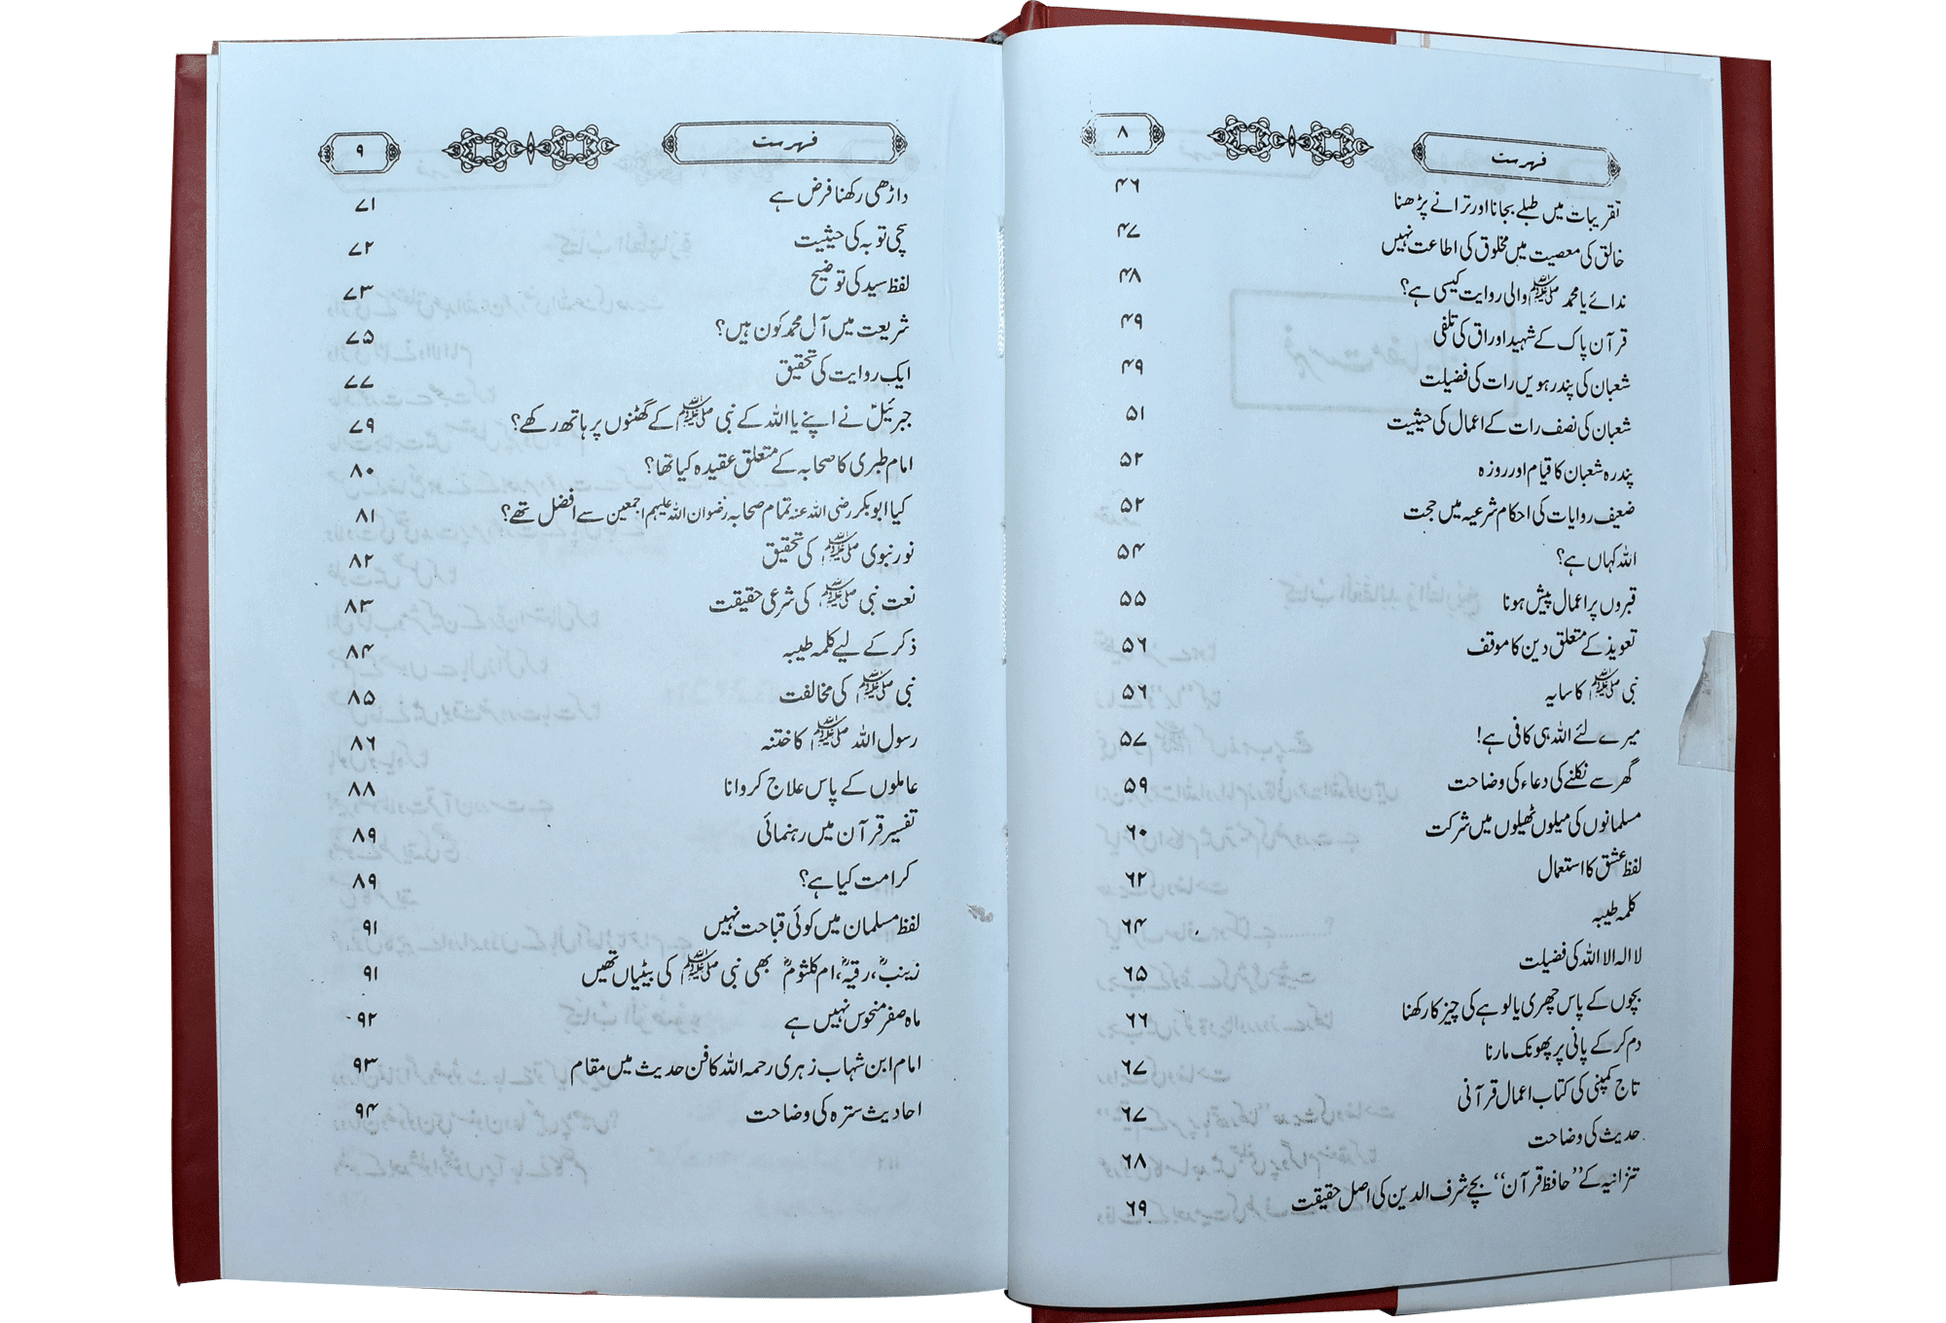 فہرست ۸
تقریبات میں طبلے بجانا اور ترانے پڑھنا ۴۶
خالق کی معصیت میں مخلوق کی اطاعت نہیں ۴۷
ندائے یا محمد ﷺ والی روایت کیسی ہے؟ ۴۸
قرآن پاک کے شہید اوراق کی تلفی ۴۹
شعبان کی پندرہویں رات کی فضیلت ۴۹
شعبان کی نصف رات کے اعمال کی حیثیت ۵۱
پندرہ شعبان کا قیام اور روزہ ۵۲
ضعیف روایات کی احکام شرعیہ میں حجت ۵۲
اللہ کہاں ہے؟ ۵۴
قبروں پر اعمال پیش ہونا ۵۵
تعویذ کے متعلق دین کا موقف ۵۶
نبی ﷺ کا سایہ ۵۶
میرے لئے اللہ ہی کافی ہے! ۵۷
گھر سے نکلنے کی دعاء کی وضاحت ۵۹
مسلمانوں کی میلوں ٹھیلوں میں شرکت ۶۰
لفظ عشق کا استعمال ۶۲
کلمہ طیبہ ۶۴
لا الہ الا اللہ کی فضیلت ۶۵
بچوں کے پاس چھری یا لوہے کی چیز کا رکھنا ۶۶
دم کر کے پانی پر پھونک مارنا ۶۷
تاج کمپنی کی کتاب اعمال قرآنی ۶۷
حدیث کی وضاحت ۶۸
تنزانیہ کے ’’حافظ قرآن‘‘ بچے شرف الدین کی اصل حقیقت ۶۹
فہرست ۹
داڑھی رکھنا فرض ہے ۷۱
سچی توبہ کی حیثیت ۷۲
لفظ سید کی توضیح ۷۳
شریعت میں آل محمد کون ہیں؟ ۷۵
ایک روایت کی تحقیق ۷۷
جبرئیلؑ نے اپنے یا اللہ کے نبی ﷺ کے گھٹنوں پر ہاتھ رکھے؟ ۷۹
امام طبری کا صحابہ کے متعلق عقیدہ کیا تھا؟ ۸۰
کیا ابوبکر رضی اللہ عنہ تمام صحابہ رضوان اللہ علیہم اجمعین سے افضل تھے؟ ۸۱
نور نبوی ﷺ کی تحقیق ۸۲
نعت نبی ﷺ کی شرعی حقیقت ۸۳
ذکر کے لیے کلمہ طیبہ ۸۴
نبی ﷺ کی مخالفت ۸۵
رسول اللہ ﷺ کا ختنہ ۸۶
عاملوں کے پاس علاج کروانا ۸۸
تفسیر قرآن میں رہنمائی ۸۹
کرامت کیا ہے؟ ۸۹
لفظ مسلمان میں کوئی قباحت نہیں ۹۱
زینبؓ، رقیہؓ، ام کلثومؓ بھی نبی ﷺ کی بیٹیاں تھیں ۹۱
ماہ صفر منحوس نہیں ہے ۹۲
امام ابن شہاب زہری رحمہ اللہ کا فن حدیث میں مقام ۹۳
احادیث سترہ کی وضاحت ۹۴